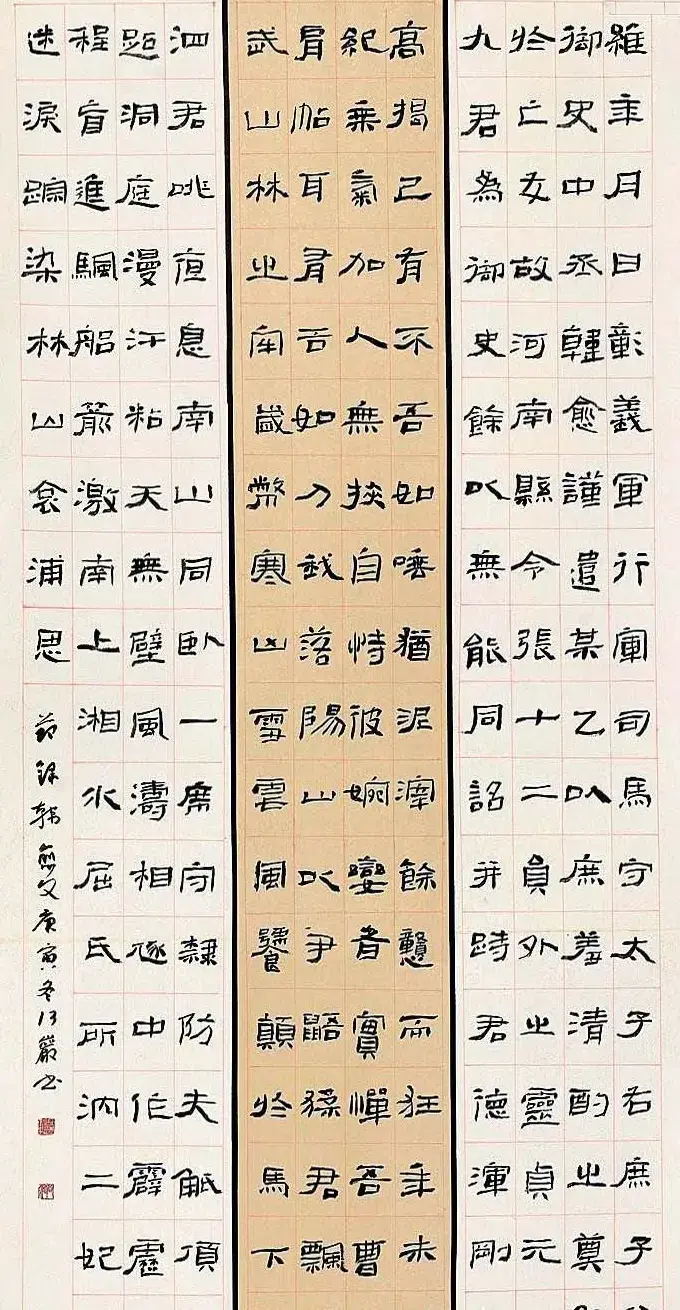 維年月日彰義軍行軍司馬守太子右庶子
御史中丞韓愈謹遣某乙以庶羞清酌之奠
於亡友故河南縣令張十二員外之靈貞元
九君為御史餘以無能同詔并跱君德渾剛
高揭己有不吾如唾猶泥滓餘戇而狂年未
紀乘氣加人無挾自恃彼婉孌者實憚吾曹
肩帖耳有舌如刀我落陽山以尹鼯猱君飄
武山林之牢歲弊寒凶雪雲風饕顛於馬下
泗君咷夜息南山同臥一席守隸防夫觝頂
跖洞庭漫汗粘天無壁風濤相豗中作霹靂
程盲進颿船箭激南上湘水屈氏所沉二妃
迷淚蹤染林山哀浦思
節錄韓愈文庚寅冬嚴書